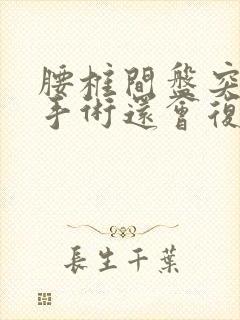 腰椎間盤突
手術還會復
長生千葉